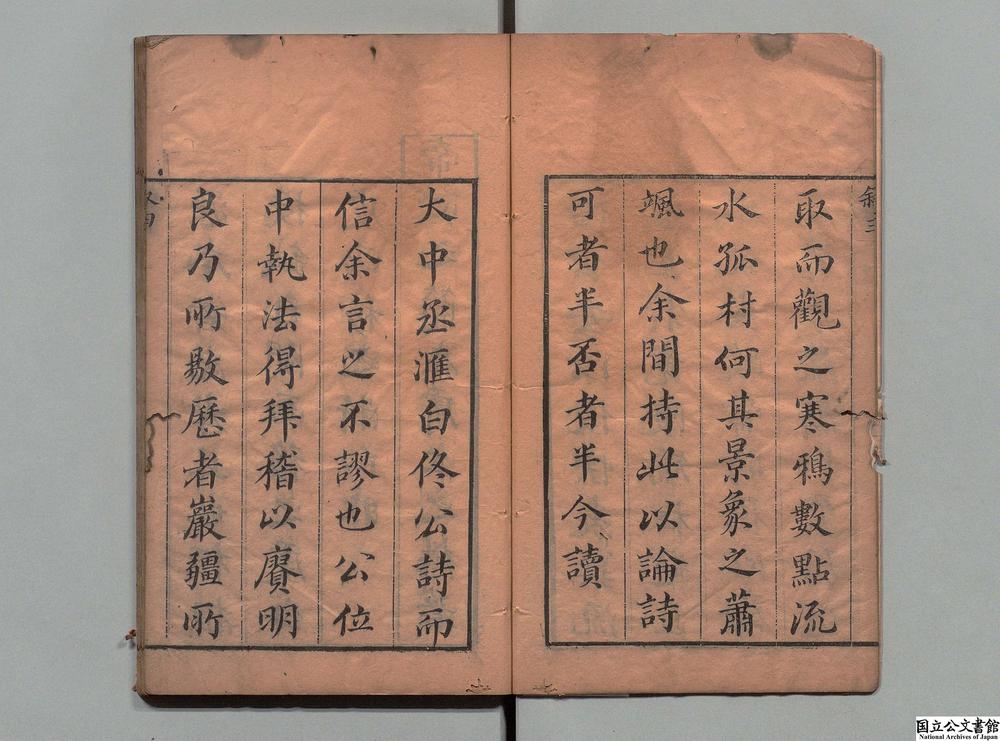 敘三
取而觀之寒鴉數點流
水孤村何其景象之蕭
颯也余間持此以論詩
可者半否者半今讀
大中丞滙白佟公詩而
信余言之不謬也公位
中執法得拜稽以賡明
良乃所敭歷者巖疆所
国立公文書館
National Archives of Japan